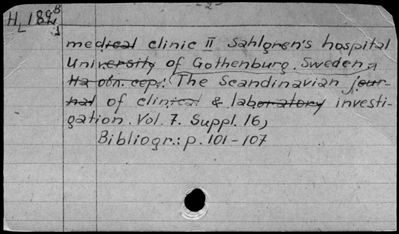 -2-
H 182
medical clinic II Sahlgren's hospital
University of Gothenburg, Sweden.
На обл. сер.: (The Scandinavian jour-
nal of clinical & laboratory investi-
gation. Vol. 7. Suppl. 16)
Bibliogr.: p. 101-107